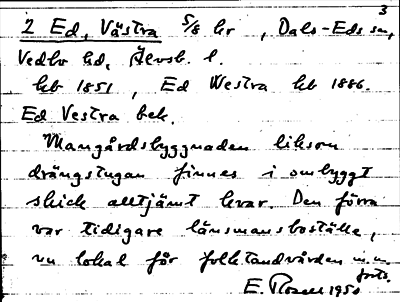 3
2 Ed, Västra 5/8 hr, Dals-Eds sn,
Vedbo hd, Älvsb. l.
kb 1851, Ed Westra kb 1886.
Ed Vestra bek.
Mangårdsbyggnaden liksom
drängstugan finnes i ombyggt
skick alltjämt kvar. Den förra
var tidigare länsmansboställe,
nu lokal för folktandvården m.m.
forts.
E. 1950